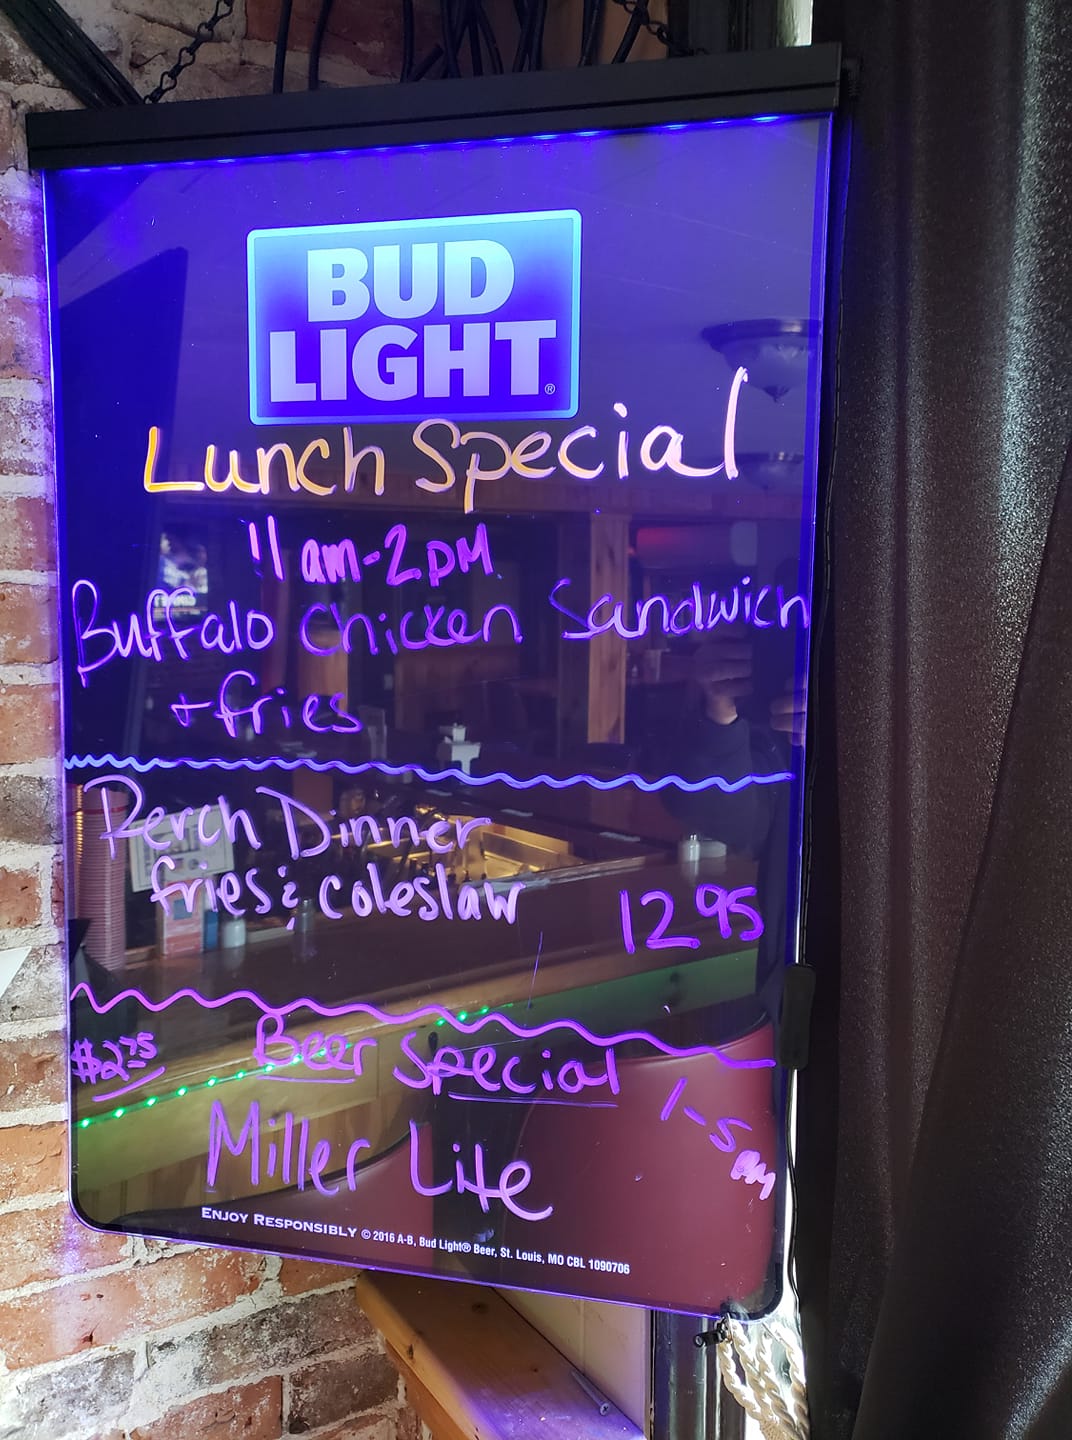 BUD
LIGHT®
Lunch Special
11 am-2PM
Buffalo Chicken Sandwich
+ fries
Perch Dinner
fries & coleslaw 12 95
$2.75 Beer Special 1-5
Miller Lite
ENJOY RESPONSIBLY © 2016 A-B, Bud Light® Beer, St. Louis, MO CBL 1090706